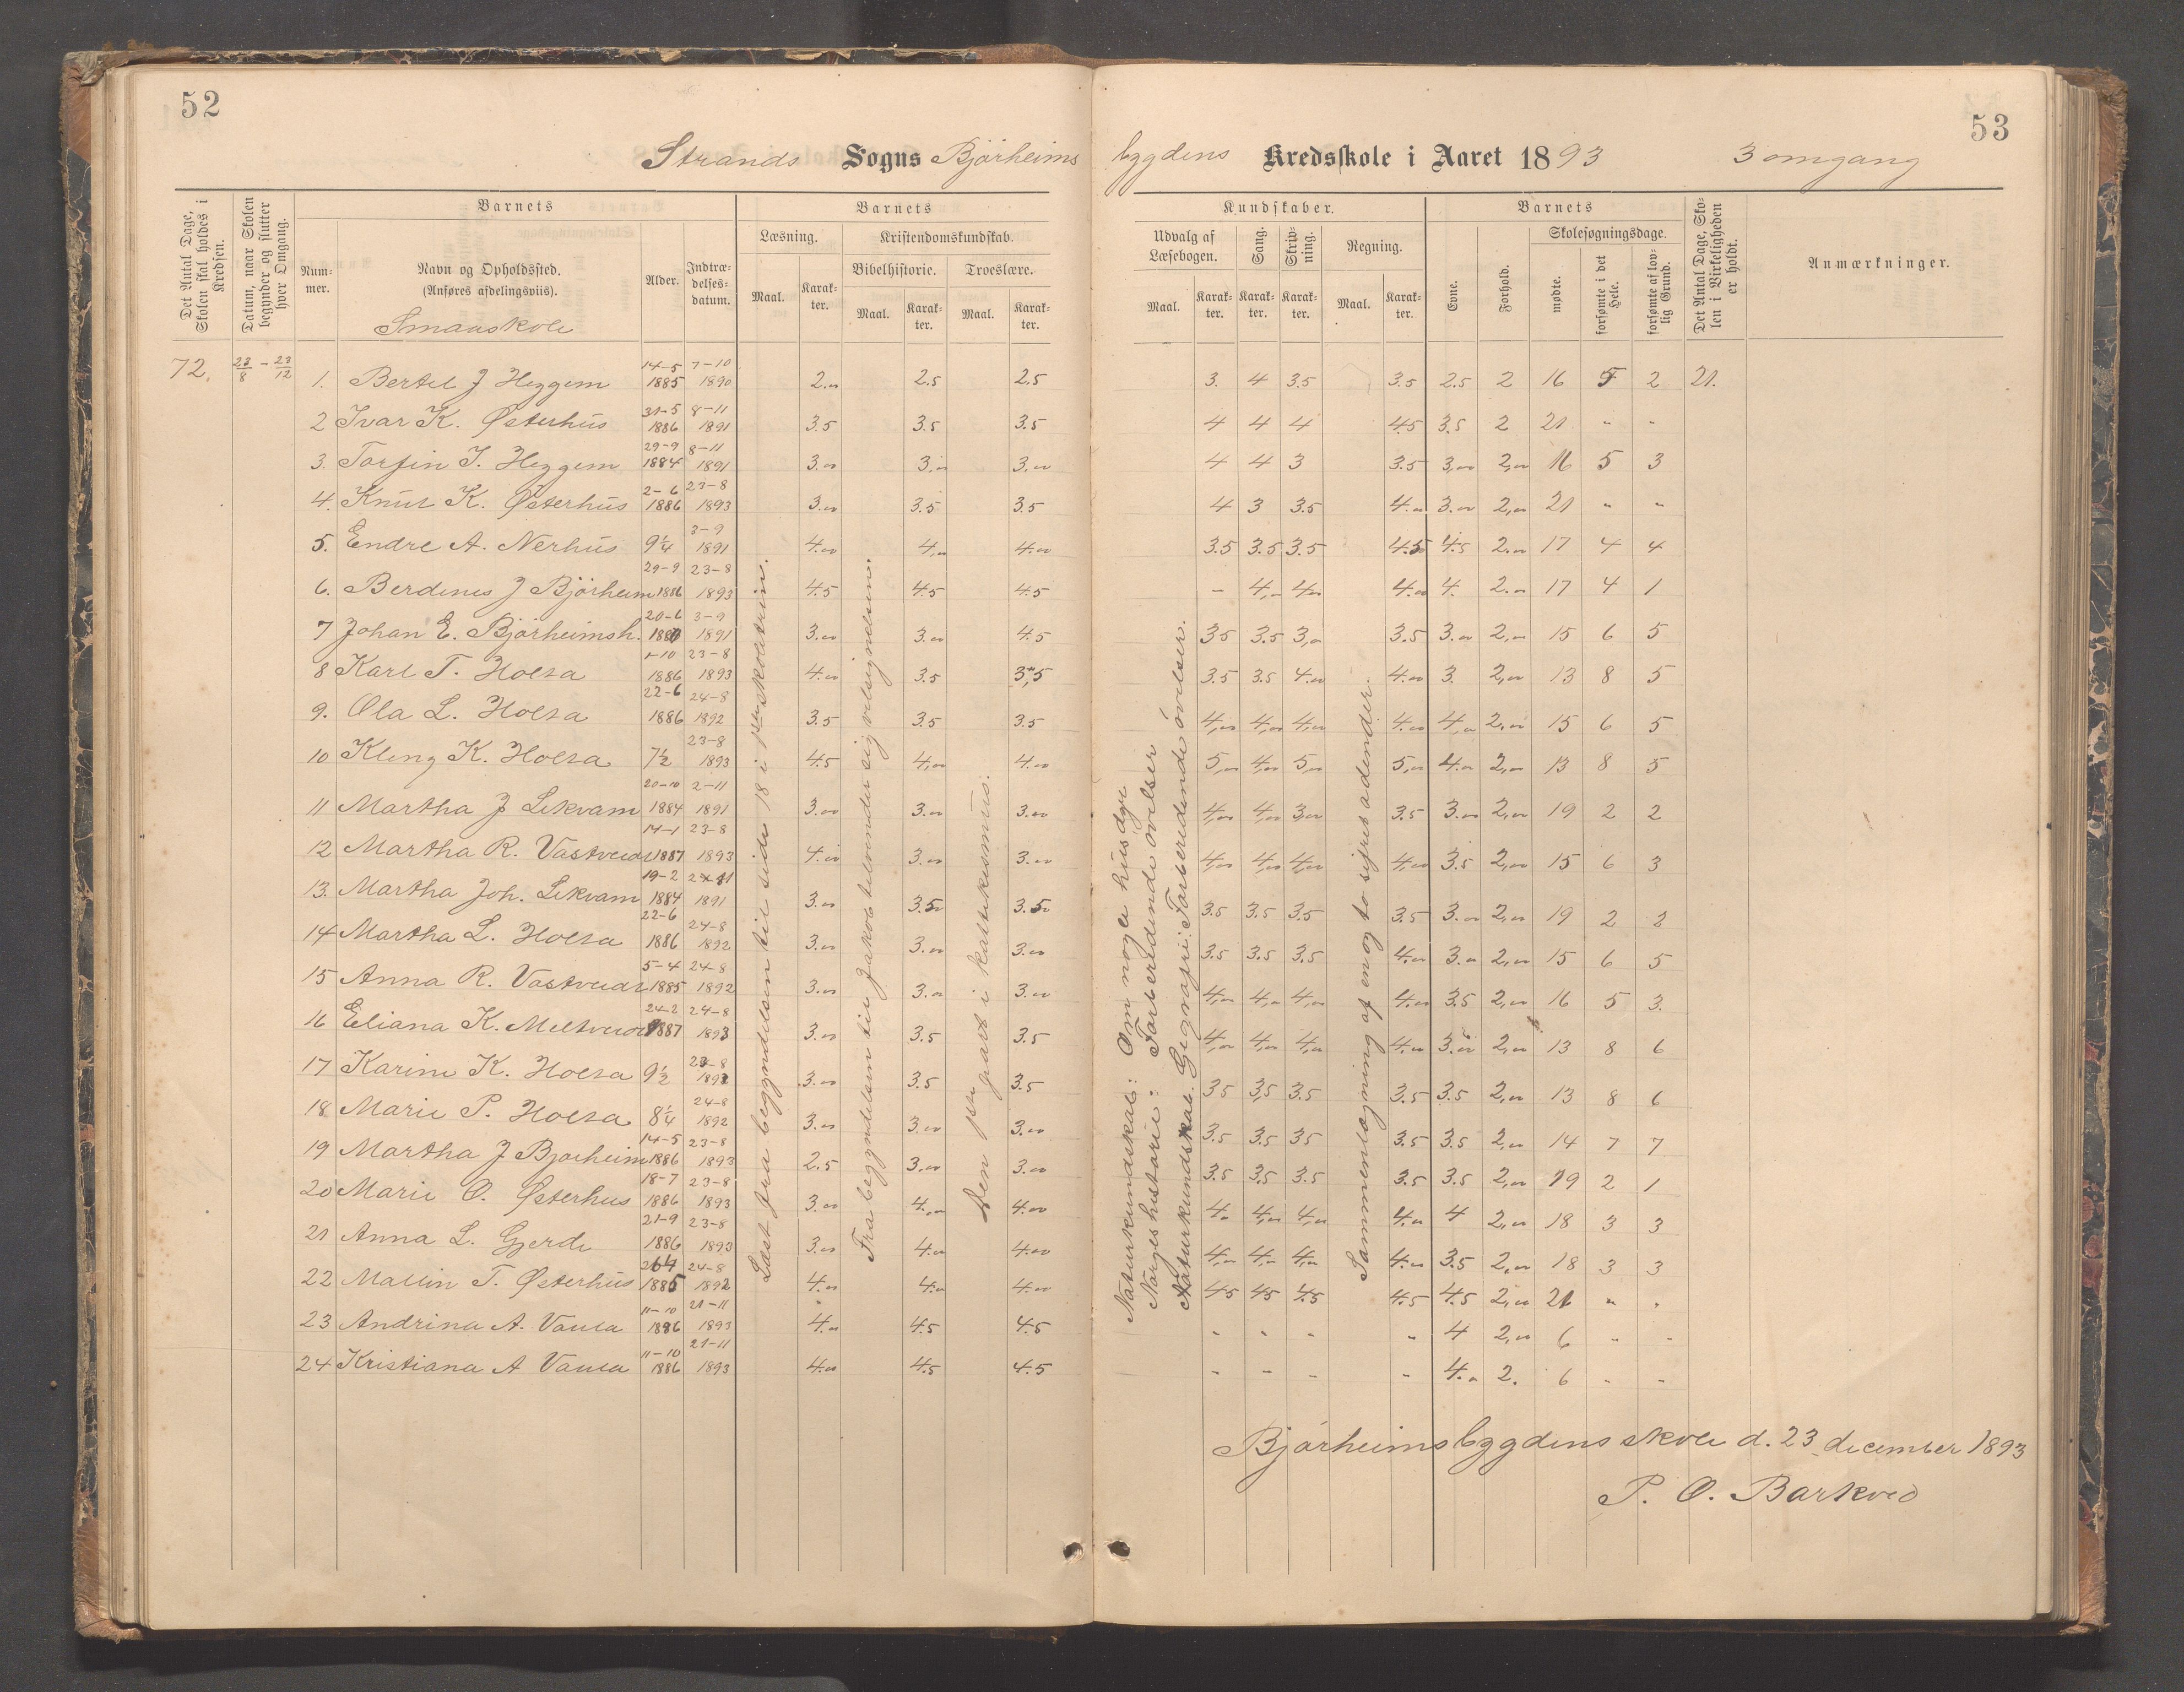 52
53
Strands Sogns Bjørheims bygdens Kredsskole i Aaret 1893 3 omgang
Det Antal Dage, Skolen skal holdes i Kredsen.
Datum, naar Skolen begynder og slutter hver Omgang.
Barnets
Nummer.
Navn og Opholdssted.
(Anføres afdelingsviis).
Smaaskole
Alder.
Indtrædelsesdatum.
Barnets
Læsning.
Maal.
Karakter.
Kristendomskundskab.
Bibelhistorie.
Troeslære.
Maal.
Karakter.
Maal.
Karakter.
Kundskaber.
Udvalg af Læsebogen.
Maal.
Karakter.
Sang.
Karakter.
Skrivning.
Karakter.
Regning.
Maal.
Karakter.
Barnets
Evne.
Forhold.
Skolesøgningsdage.
mødte.
forsømte i det Hele.
forsømte af lovlig Grund.
Det Antal Dage, Skolen i Virkeligheden er holdt.
Anmærkninger.
72. 23/8 - 23/12
1. Bertel J Heggem 14-5 1885 7-10 1890 2.00 2.5 2.5 3. 4 3.5 3.5 2.5 2 16 5 2 21.
2 Ivar K. Østerhus 31-5 1886 8-11 1891 3.5 3.5 3.5 4 4 4 4.5 3.5 2 21 " "
3. Torfin T. Heggem 29-9 1884 8-11 1891 3.00 3.00 3.00 4 4 3 3.5 3,00 2,00 16 5 3
4. Knut K. Østerhus 2-6 1886 23-8 1893 3.00 3.5 3.5 4 3 3.5 4.00 3.00 2,00 21 " "
5. Endre A. Nerhus 9 1/4 3-9 1891 4.00 4,00 4.00 3.5 3.5 3.5 4.5 4.5 2.00 17 4 4
6. Berdines J Bjørheim 29-9 1886 23-8 1893 4.5 4.5 4.5 - 4,00 4.00 4.00 4. 2.00 17 4 1
7 Johan E. Bjørheimsh. 20-6 3-9 1891 3.00 3.00 4.5 3.5 3.5 3,00 3.5 3.00 2,00 15 6 5
8 Karl T. Holta 1-10 1886 23-8 1893 4.00 3.5 3,5 3.5 3.5 4.00 4.00 3. 2,00 13 8 5
9. Ola L. Holta 22-6 1886 24-8 1892 3.5 3.5 3.5 4,00 4,00 4,00 4.00 4,00 2,00 15 6 5
10 Kleng K. Holta 7 1/2 23-8 1893 4.5 4,00 4.00 5,00 4,00 5,00 5,00 4.00 2,00 13 8 5
11 Martha J Lekvam 20-10 1884 2-11 1891 3.00 3.00 3.00 4,00 4,00 3,00 3.5 3.00 2,00 19 2 2
12 Martha R. 14-1 1887 23-8 1893 4.00 3.00 3.00 4,00 4,00 4,00 4,00 3.5 2,00 15 6 3
13. Martha Joh. Lekvam 19-2 1884 1891 3.00 3.5 3.5 3.5 3.5 3.5 3.5 3.00 2,00 19 2 2
14 Martha L. Holta 22-6 1886 24-8 1892 3.00 3.00 3.00 3.5 3.5 3.5 4.00 3.00 2,00 15 6 5
15 Anna R. 5-4 1885 24-8 1892 3.00 3.00 3.00 4,00 4,00 4,00 4.00 3.5 2,00 16 5 3.
16 Eliana K. 24-2 1887 24-8 1893 3.00 3.5 3.5 4,00 4,00 4,00 4.00 2,00 13 8 6
17 Karine K. Holta 9 1/2 3.00 3.5 3.5 3.5 3,5 3.5 3.5 3.5 2,00 13 8 6
18 Marie P. Holta 8 1/4 24-8 1892 3.00 3.00 3.00 3.5 3.5 3.5 3.5 3.5 2,00 14 7 7
19 Martha J Bjørheim 14-5 1886 23-8 1893 2.5 3.00 3.00 3.5 3.5 3.5 3.5 3.5 2,00 19 2 1
20 Marie O. Østerhus 18-7 1886 23-8 1893 3.00 4,00 4.00 4. 4,00 4,00 4.00 4 2,00 18 3 3
21 Anna L. Gjerde 21-9 1886 23-8 1893 3.00 4.00 4.00 4,00 4,00 4,00 4.00 3.5 2,00 18 3 3
22 Mallin T. Østerhus 1885 24-8 1892 4.00 4.00 4.00 4.5 4.5 4.5 4.5 4.5 2,00 21 " "
23 Andrina A. Vaula 11-10 1886 21-11 1893 4.00 4.5 4.5 " " " " 4 2,00 6 " "
24 Kristiana A Vaula 11-10 1886 21-11 1893 4.00 4.5 4.5 " " " " 4.00 2. 6 " "
Læst fra begyndelsen til side 18 i 1ste skoletrin.
Fra begyndelsen til Jakob tilvender sig velsignelsen.
Den 1ste part i katekismus.
Naturkundskab: Om nogle husdyr
Norgeshistorie: Forberedende øvelser
Naturkundskab. Geografi: Forberedende øvelser.
Sammenlægning af en og to sifret adender.
Bjørheimsbygdens skole d. 23 december 1893
P. O. Barkved